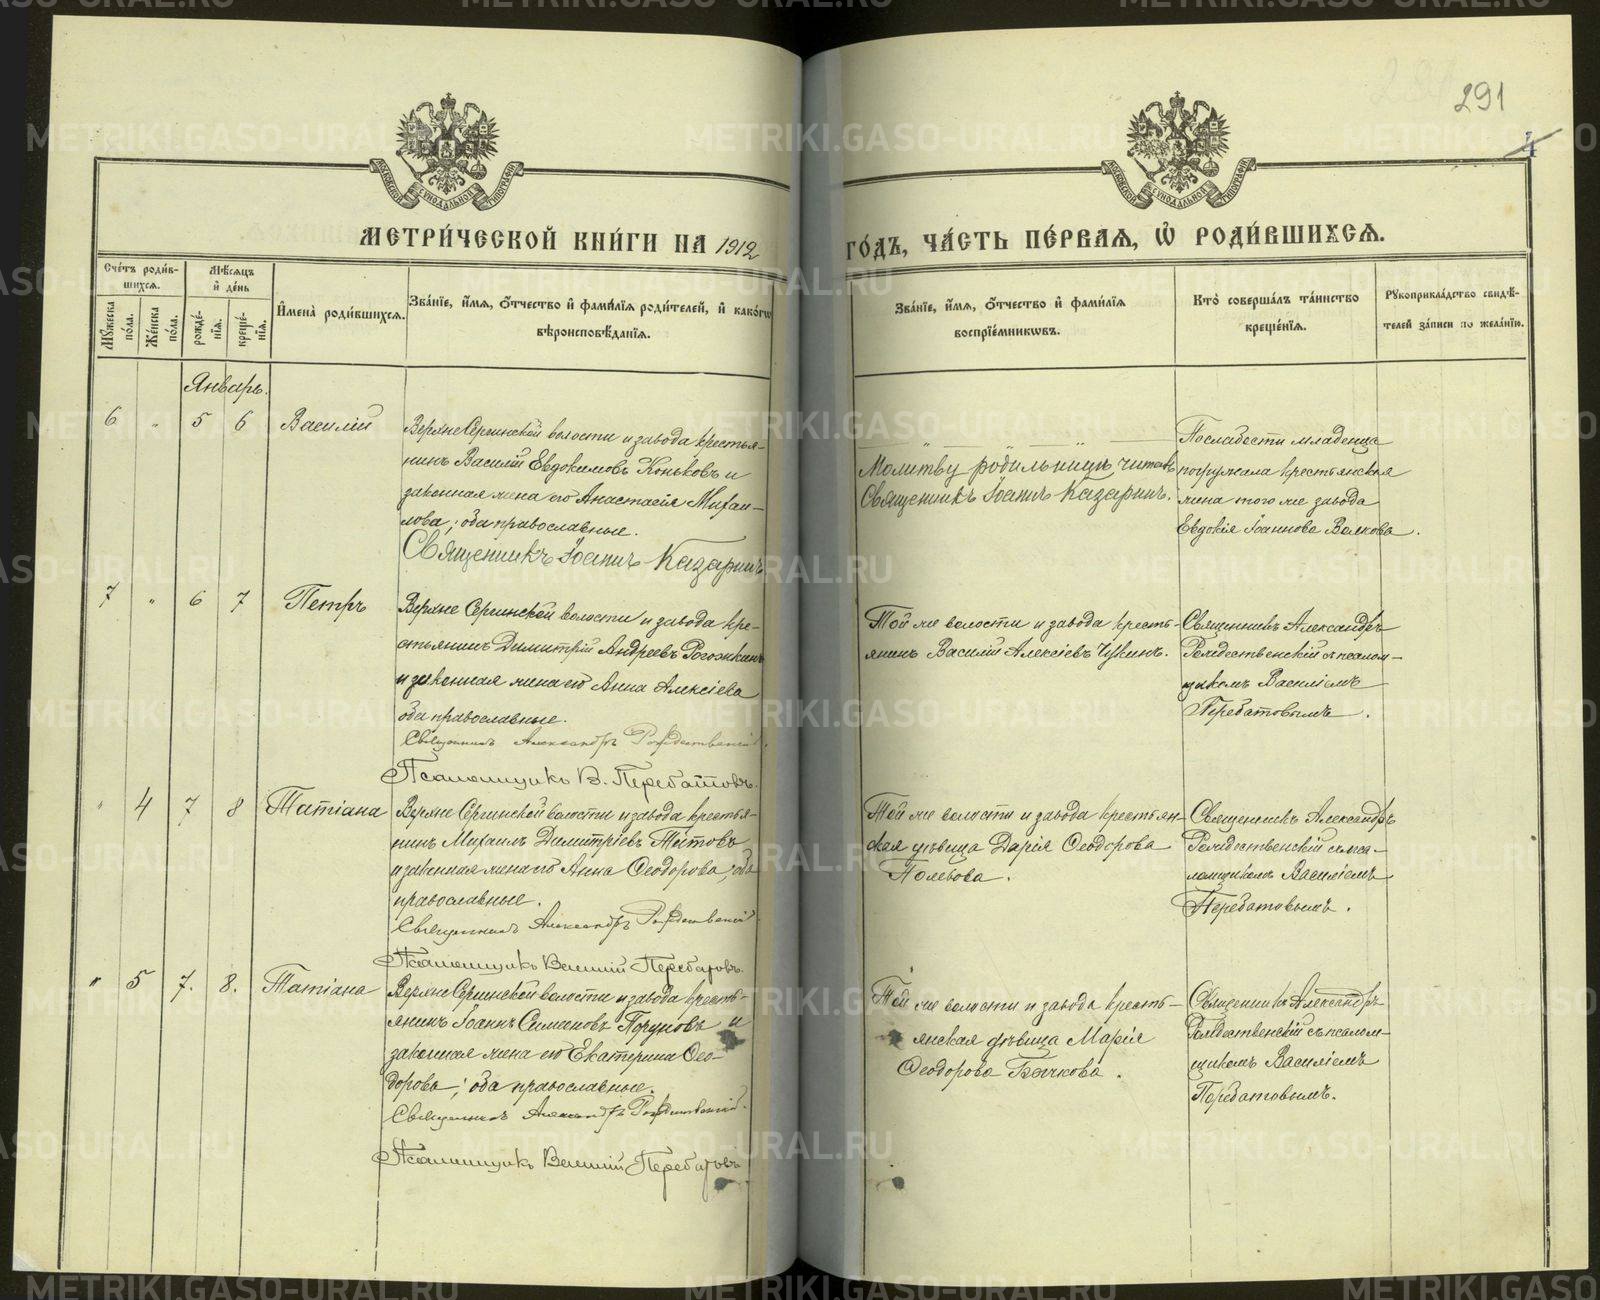 291
4
МЕТРИ́ЧЕСКОЙ КНИ́ГИ НА 1912
ГО́ДЪ, ЧА́СТЬ ПЕ́РВАЯ, Ѡ РОДИ́ВШИХСЯ.
Сче́тъ роди́в-
шихся.
Мꙋ́жеска по́ла.
Же́нска по́ла.
Мѣ́сяцъ
и҆ де́нь
рожде́-
нїя.
креще́-
нїя.
И҆мена̀ роди́вшихся.
Зва́нїе, и҆́мя, ѻ҆́тчество и҆ фами́лїя роди́телей, и҆ како́гѡ
вѣроисповѣ́данїя.
Зва́нїе, и҆́мя, ѻ҆́тчество и҆ фами́лїя
воспрїе́мникѡвъ.
Кто̀ соверша́лъ та́инство
креще́нїя.
Рꙋкоприкла́дство свидѣ́-
телей за́писи по жела́нїю.
Январь.
6 " 5 6 Василій
Верхне Сергинской волости и завода крестья-
нинъ Василій Евдокимовъ Коньковъ и
законная жена его Анастасія Михаи-
лова; оба православные.
Священникъ Іоаннъ Казаринъ
Молитву родильницѣ читалъ
Священникъ Іоаннъ Казаринъ.
По слабости младенца
погружала крестьянская
жена того же завода
Евдокія Іоаннова Волкова.
7 " 6 7 Петръ
Верхне Сергинской волости и завода кре-
стьянинъ Димитрій Андреевъ Рогожкинъ
и законная жена его Анна Алексіева
оба православные.
Священникъ Александръ Рождественскій.
Псаломщикъ В. Перебатовъ.
Той же волости и завода кресть-
янинъ Василій Алексіевъ Чукинъ.
Священникъ Александръ
Рождественскій съ псалом-
щикомъ Василіемъ
Перебатовымъ.
" 4 7 8 Татіана
Верхне Сергинской волости и завода крестья-
нинъ Михаилъ Димитріевъ Титовъ
и законная жена его Анна Ѳеодорова; оба
православные.
Священникъ Александръ Рождественскій
Псаломщикъ Василій Перебатовъ.
Той же волости и завода крестьян-
ская дѣвица Дарія Ѳеодорова
Полевова.
Священникъ Александръ
Рождественскій съ пса-
ломщикомъ Василіемъ
Перебатовымъ.
" 5 7. 8. Татіана
Верхне Сергинской волости и завода кресть-
янинъ Іоаннъ Симеоновъ Поруновъ и
законная жена его Екатерина Ѳео-
дорова; оба православные.
Священникъ Александръ Рождественскій.
Псаломщикъ Василій Перебатовъ
Той же волости и завода кресть-
янская дѣвица Марія
Ѳеодорова Бычкова.
Священникъ Александръ
Рождественскій съ псалом-
щикомъ Василіемъ
Перебатовымъ.
METRIKI.GASO-URAL.RU